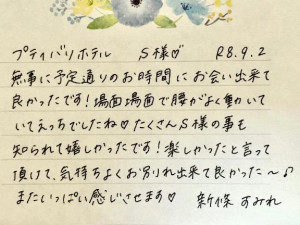 プティバリホテル S様♡ R8.9.2
無事に予定通りのお時間にお会い出来て
良かったです!場面場面で腰がよく動いて
いてえっちでしたね♡たくさんS様の事も
知られて嬉しかったです!楽しかったと言って
頂けて、気持ちよくお別れ出来て良かった〜♪
またいっぱい感じさせます♡ 新條 すみれ